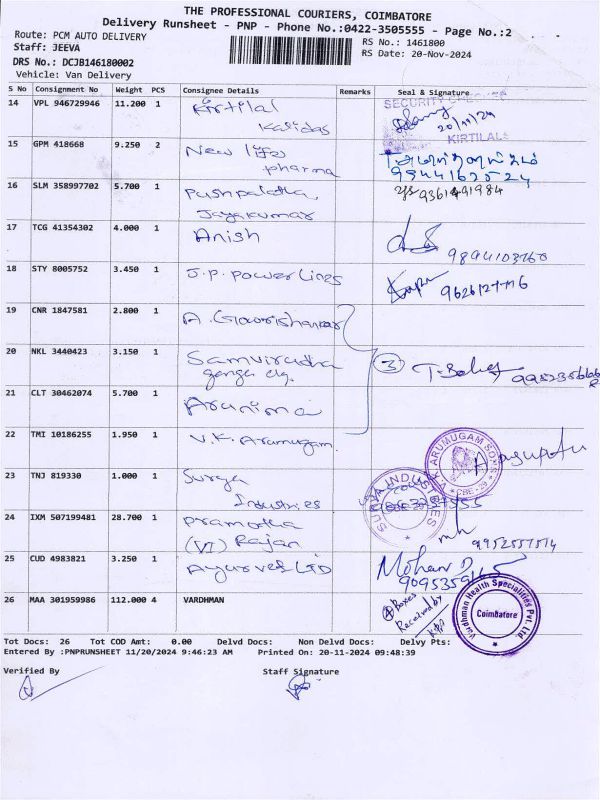 THE PROFESSIONAL COURIERS, COIMBATORE
Delivery Runsheet - PNP - Phone No.:0422-3505555 - Page No.:2
Route: PCM AUTO DELIVERY
RS No.: 1461800
Staff: JEEVA
RS Date: 20-Nov-2024
DRS No.: DCJB146180002
Vehicle: Van Delivery
S No Consignment No Weight PCS Consignee Details Remarks Seal & Signature
14 VPL 946729946 11.200 1 Kirtilal Kalidas
20/11/24
KIRTILALS
15 GPM 418668 9.250 2 New life pharma
16 SLM 358997702 5.700 1 Pushpalatha, Jayakumar
9361491984
17 TCG 41354302 4.000 1 Anish
18 STY 8005752 3.450 1 J.P. Power Lines
19 CNR 1847581 2.800 1 A. Gowrishankar
20 NKL 3440423 3.150 1 Samvirudha
3
21 CLT 30462074 5.700 1 Arunima
22 TMI 10186255 1.950 1 V.K. Arumugam.
23 TNJ 819330 1.000 1 Surya Industries
SURYA INDUSTRIES
24 IXM 507199481 28.700 1 Pramotha (VI) Rajan
9952557574
25 CUD 4983821 3.250 1 Ayurved LTD
Mohan
26 MAA 301959986 112.000 4 VARDHMAN
4 Boxes
Received by
Vardhman Health Specialities Pvt. Ltd.
Coimbatore
Tot Docs: 26 Tot COD Amt: 0.00 Delvd Docs: Non Delvd Docs: Delvy Pts:
Entered By :PNPRUNSHEET 11/20/2024 9:46:23 AM Printed On: 20-11-2024 09:48:39
Verified By
Staff Signature